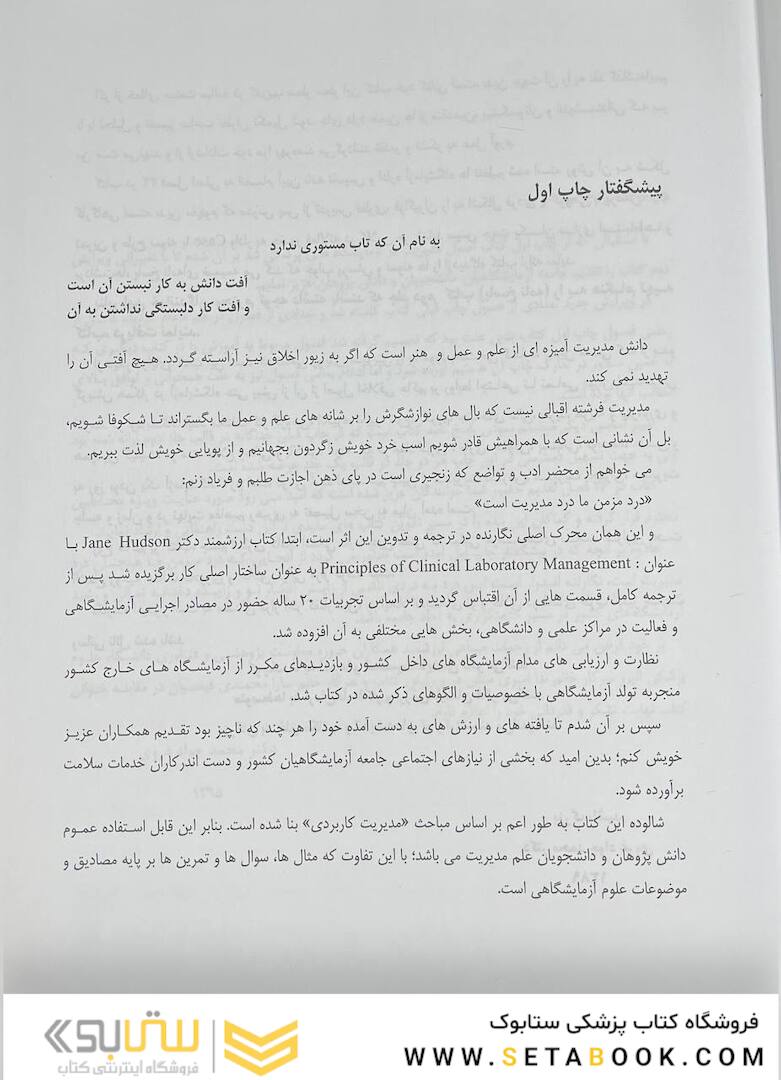 پیشگفتار چاپ اول
به نام آن که تاب مستوری ندارد
آفت دانش به کار نبستن آن است
و آفت کار دلبستگی نداشتن به آن
دانش مدیریت آمیزه ای از علم و عمل و هنر است که اگر به زیور اخلاق نیز آراسته گردد. هیچ آفتی آن را
تهدید نمی کند.
مدیریت فرشته اقبالی نیست که بال های نوازشگرش را بر شانه های علم و عمل ما بگستراند تا شکوفا شویم،
بل آن نشانی است که با همراهیش قادر شویم اسب خرد خویش زگردون بجهانیم و از پویایی خویش لذت ببریم.
می خواهم از محضر ادب و تواضع که زنجیری است در پای ذهن اجازت طلبم و فریاد زنم:
«درد مزمن ما درد مدیریت است»
و این همان محرک اصلی نگارنده در ترجمه و تدوین این اثر است، ابتدا کتاب ارزشمند دکتر Jane Hudson با
عنوان : Principles of Clinical Laboratory Management به عنوان ساختار اصلی کار برگزیده شد پس از
ترجمه کامل، قسمت هایی از آن اقتباس گردید و بر اساس تجربیات ۲۰ ساله حضور در مصادر اجرایی آزمایشگاهی
و فعالیت در مراکز علمی و دانشگاهی، بخش هایی مختلفی به آن افزوده شد.
نظارت و ارزیابی های مدام آزمایشگاه های داخل کشور و بازدیدهای مکرر از آزمایشگاه های خارج کشور
منجربه تولد آزمایشگاهی با خصوصیات و الگوهای ذکر شده در کتاب شد.
سپس بر آن شدم تا یافته های و ارزش های به دست آمده خود را هر چند که ناچیز بود تقدیم همکاران عزیز
خویش کنم؛ بدین امید که بخشی از نیازهای اجتماعی جامعه آزمایشگاهیان کشور و دست اندرکاران خدمات سلامت
برآورده شود.
شالوده این کتاب به طور اعم بر اساس مباحث «مدیریت کاربردی» بنا شده است. بنابر این قابل استفاده عموم
دانش پژوهان و دانشجویان علم مدیریت می باشد؛ با این تفاوت که مثال ها، سوال ها و تمرین ها بر پایه مصادیق و
موضوعات علوم آزمایشگاهی است.
فروشگاه کتاب پزشکی ستابوک
WWW.SETABOOK.COM
ستابوک
فروشگاه اینترنتی کتاب